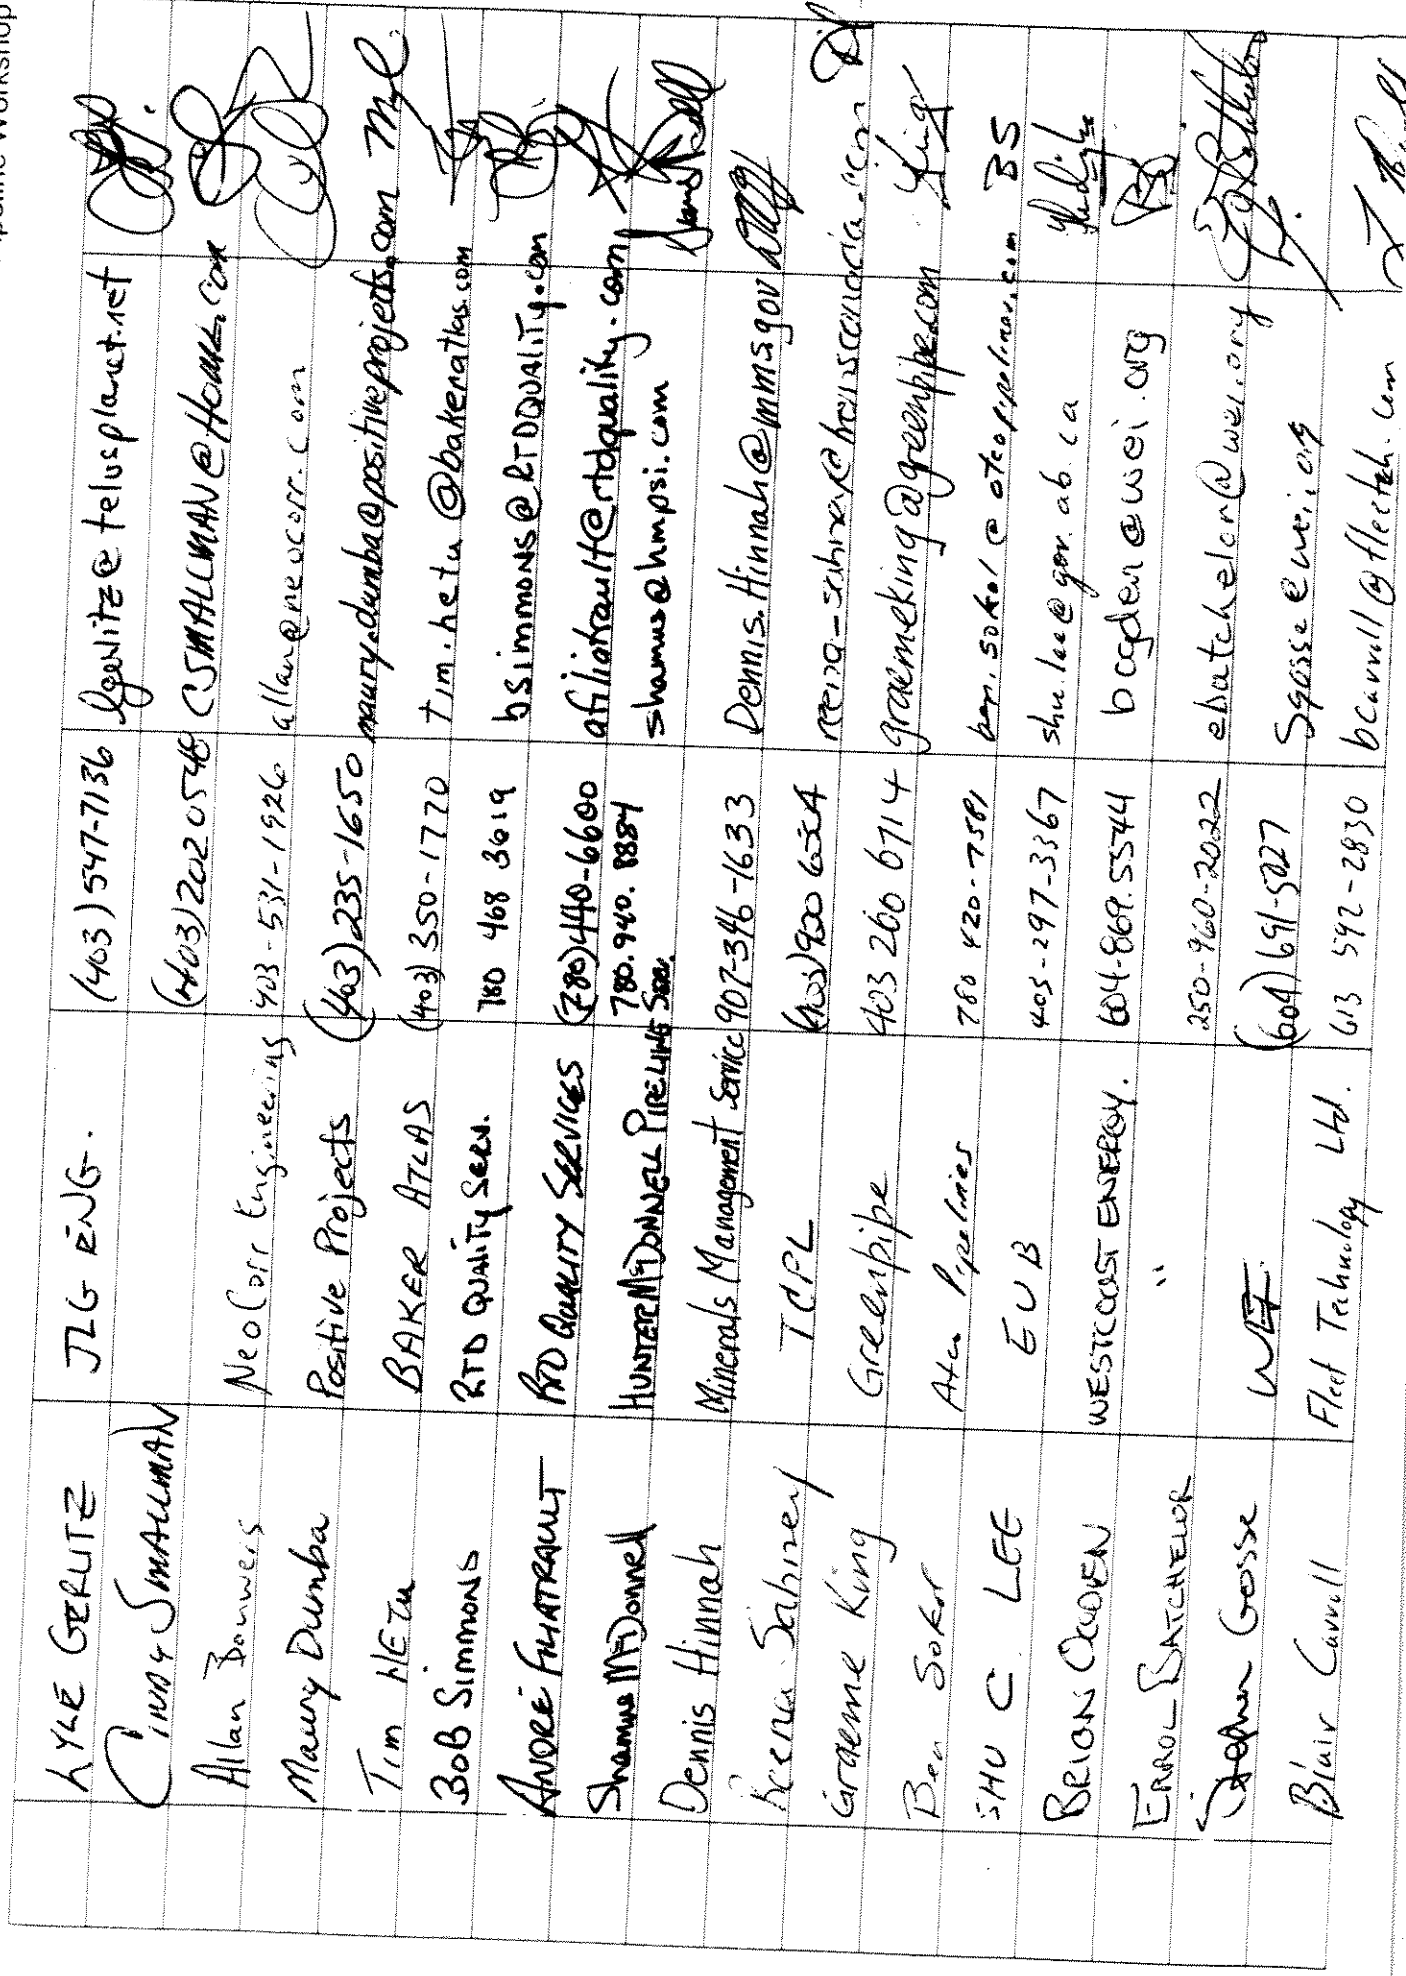 Workshop
LYLE GERLITZ JLG ENG. (403) 547-7136 lgerlitz@telusplanet.net
CINDY SMALLMAN (403) 202 0548 CSMALLMAN@Home.com
Allan Bouwers NeoCorr Engineering 403-531-1926 allan@neocorr.com
Maury Dumba Positive Projects (403) 235-1650 maury.dumba@positiveprojects.com
Tim HETU BAKER ATLAS (403) 350-1770 tim.hetu@bakeratlas.com
BOB SIMMONS RTD QUALITY SERV. 780 468 3619 bsimmons@RTDQUALITY.com
ANDRÉ FILIATRAULT RTD QUALITY SERVICES (780) 440-6600 afiliatrault@rtdquality.com
Shamus McDonnell HUNTER McDONNELL PIPELINE Serv. 780.940.8884 shamus@hmpsi.com
Dennis Hinnah Minerals Management Service 907-346-1633 Dennis.Hinnah@mms.gov
Reena Sahney TCPL (403)
Graeme King Greenpipe 403 260 6714 graemeking@greenpipe.com
Ben Sokol Atco Pipelines 780 420-7581 ben.sokol@atcopipelines.com BS
SHU C LEE EUB 403-297-3367 shu.lee@gov.ab.ca
BRION OGDEN WESTCOAST ENERGY. 604-869.5544 bogden@wei.org
ERROL BATCHELOR " 250-960-2022 ebatchelor@wei.org
Stephen Gosse WEI (604) 691-5027 sgosse@wei.org
Blair Carroll Fleet Technology Ltd. 613 592-2830 bcarroll@fleetech.com